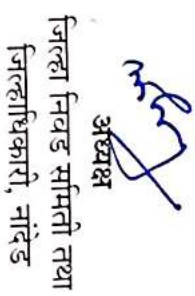 अध्यक्ष
जिल्हा निवड समिती तथा
जिल्हाधिकारी, नांदेड